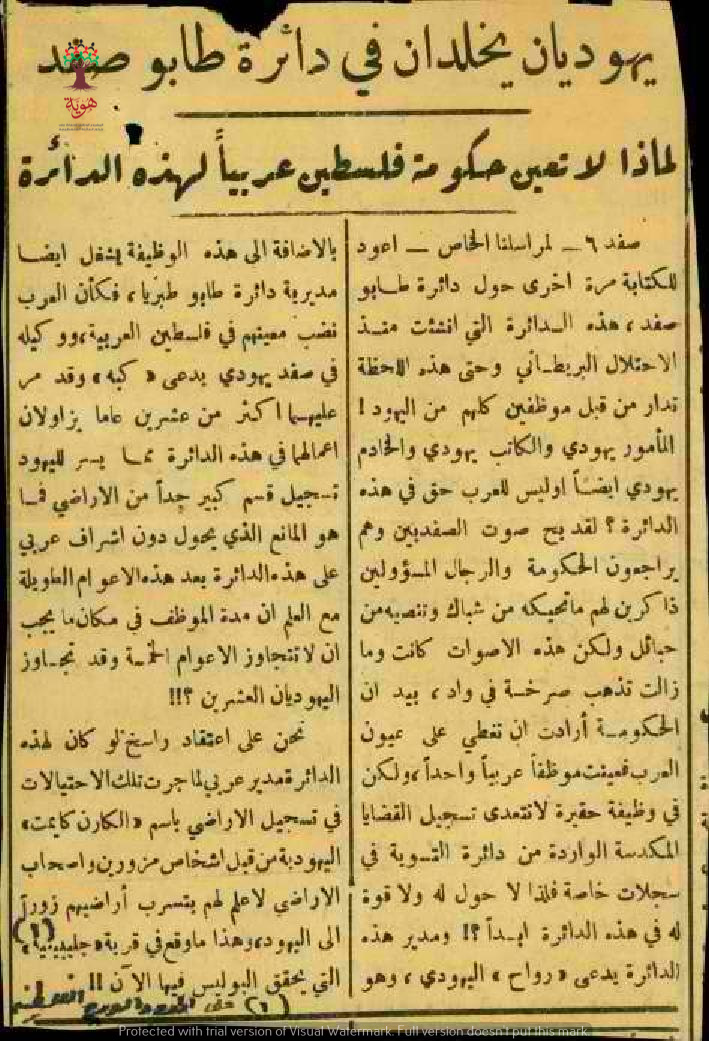 يهوديان يخلدان في دائرة طابو صفد
هوية
لماذا لا تعين حكومة فلسطين عربياً لهذه الدائرة
صفد ٦ ــ لمراسلنا الخاص ــ اعود
للكتابة مرة اخرى حول دائرة طـابو
صفد ، هذه الـدائرة التي انشئت منـذ
الاحتلال البريطـاني وحتى هذه اللحظة
تدار من قبل موظفين كلهم من اليهود !
المأمور يهودي والكاتب يهودي والخادم
يهودي ايضـاً اوليس للعرب حق في هذه
الدائرة ؟ لقد بح صوت الصفديين وهم
يراجعون الحكومة والرجال المسؤولين
ذاكرين لهم ماتحيكه من شباك وتنصبه من
حبائل ولكن هذه الاصوات كانت وما
زالت تذهب صرخـة في واد ، بيد ان
الحكومـة أرادت ان تغطي على عيون
العرب فعينت موظفاً عربياً واحداً ، ولكن
في وظيفة حقيرة لاتتعدى تسجيل القضايا
المكدسة الواردة من دائرة التسوية في
سجلات خاصة فلذا لا حول له ولا قوة
له في هذه الدائرة ابـداً ؟! ومدير هذه
الدائرة يدعى « رواح » اليهودي ، وهو
بالاضافة الى هذه الوظيفة يشغل ايضـا
مديرية دائرة طابو طبريا ، فكأن العرب
نضب معينهم في فلسطين العربية ، ووكيله
في صفد يهودي يدعى « كبه » وقد مر
عليهـما اكثر من عشرين عاما يزاولان
اعمالهما في هذه الدائرة ممـا يسر لليهود
تسجيل قسم كبير جداً من الاراضي فمـا
هو المانع الذي يحول دون اشراف عربي
على هذه الدائرة بعد هذه الاعوام الطويلة
مع العلم ان مدة الموظف في مكان ما يجب
ان لا تتجاوز الاعوام الخمـة وقد تجـاوز
اليهوديان العشرين ؟!!
نحن على اعتقاد راسخ لو كان لهذه
الدائرة مدير عربي لما جرت تلك الاحتيالات
في تسجيل الاراضي باسم « الكارن كايمت »
اليهودية من قبل اشخاص مزورين واصحاب
الاراضي لاعلم لهم بتسرب أراضيهم زوراً
الى اليهود ، وهذا ماوقع في قرية « جليبينية » (١)
التي يحقق البوليس فيها الآن !!
(١) على الحدود السورية الفلسطينية
Protected with trial version of Visual Watermark. Full version doesn't put this mark.